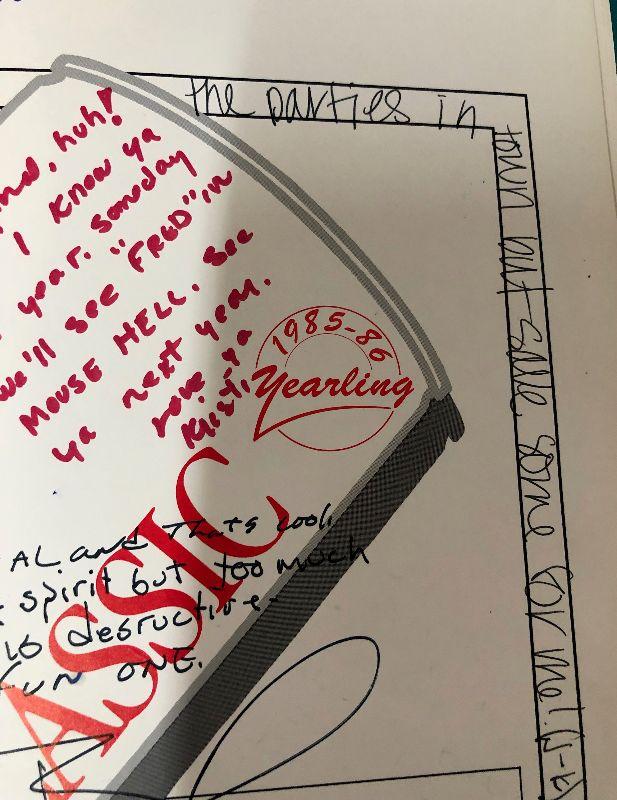 the parties in
town but save some for me!
huh!
I know ya
year. Someday
we'll see "FRED" in
MOUSE HELL. See
ya next year.
Love ya
Kristi
1985-86
Yearling
ASSIC
AL. and thats cool
spirit but too much
is destructive-
FUN ONE.